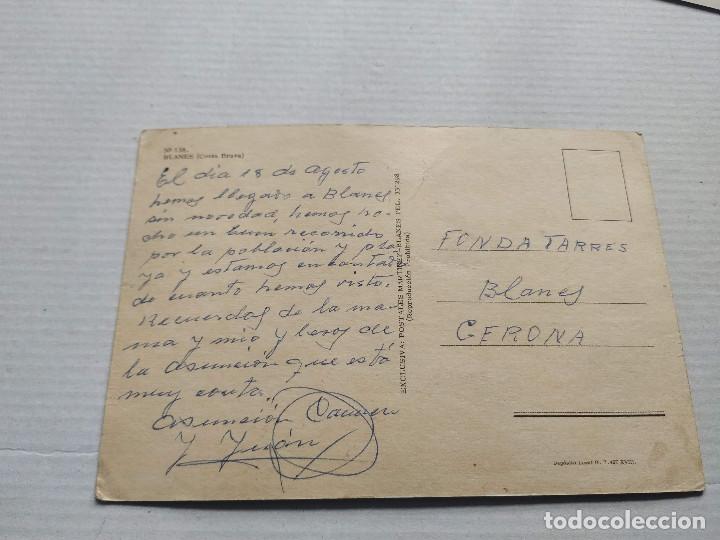 Nº 138.
BLANES (Costa Brava)
El dia 18 de Agosto
hemos llegado a Blanes
sin novedad, hemos he-
cho un buen recorrido
por la población y pla-
ya y estamos encantad
de cuanto hemos visto.
Recuerdos de la ma-
ma y mio y besos de
la Asunción que está
muy conta.
Asunción Carmen
y Juán
EXCLUSIVA: POSTALES MARTINEZ-BLANES TEL.
(Reproducción Prohibida)
FONDA TARRES
Blanes
GERONA
Depósito Legal B.
todocoleccion